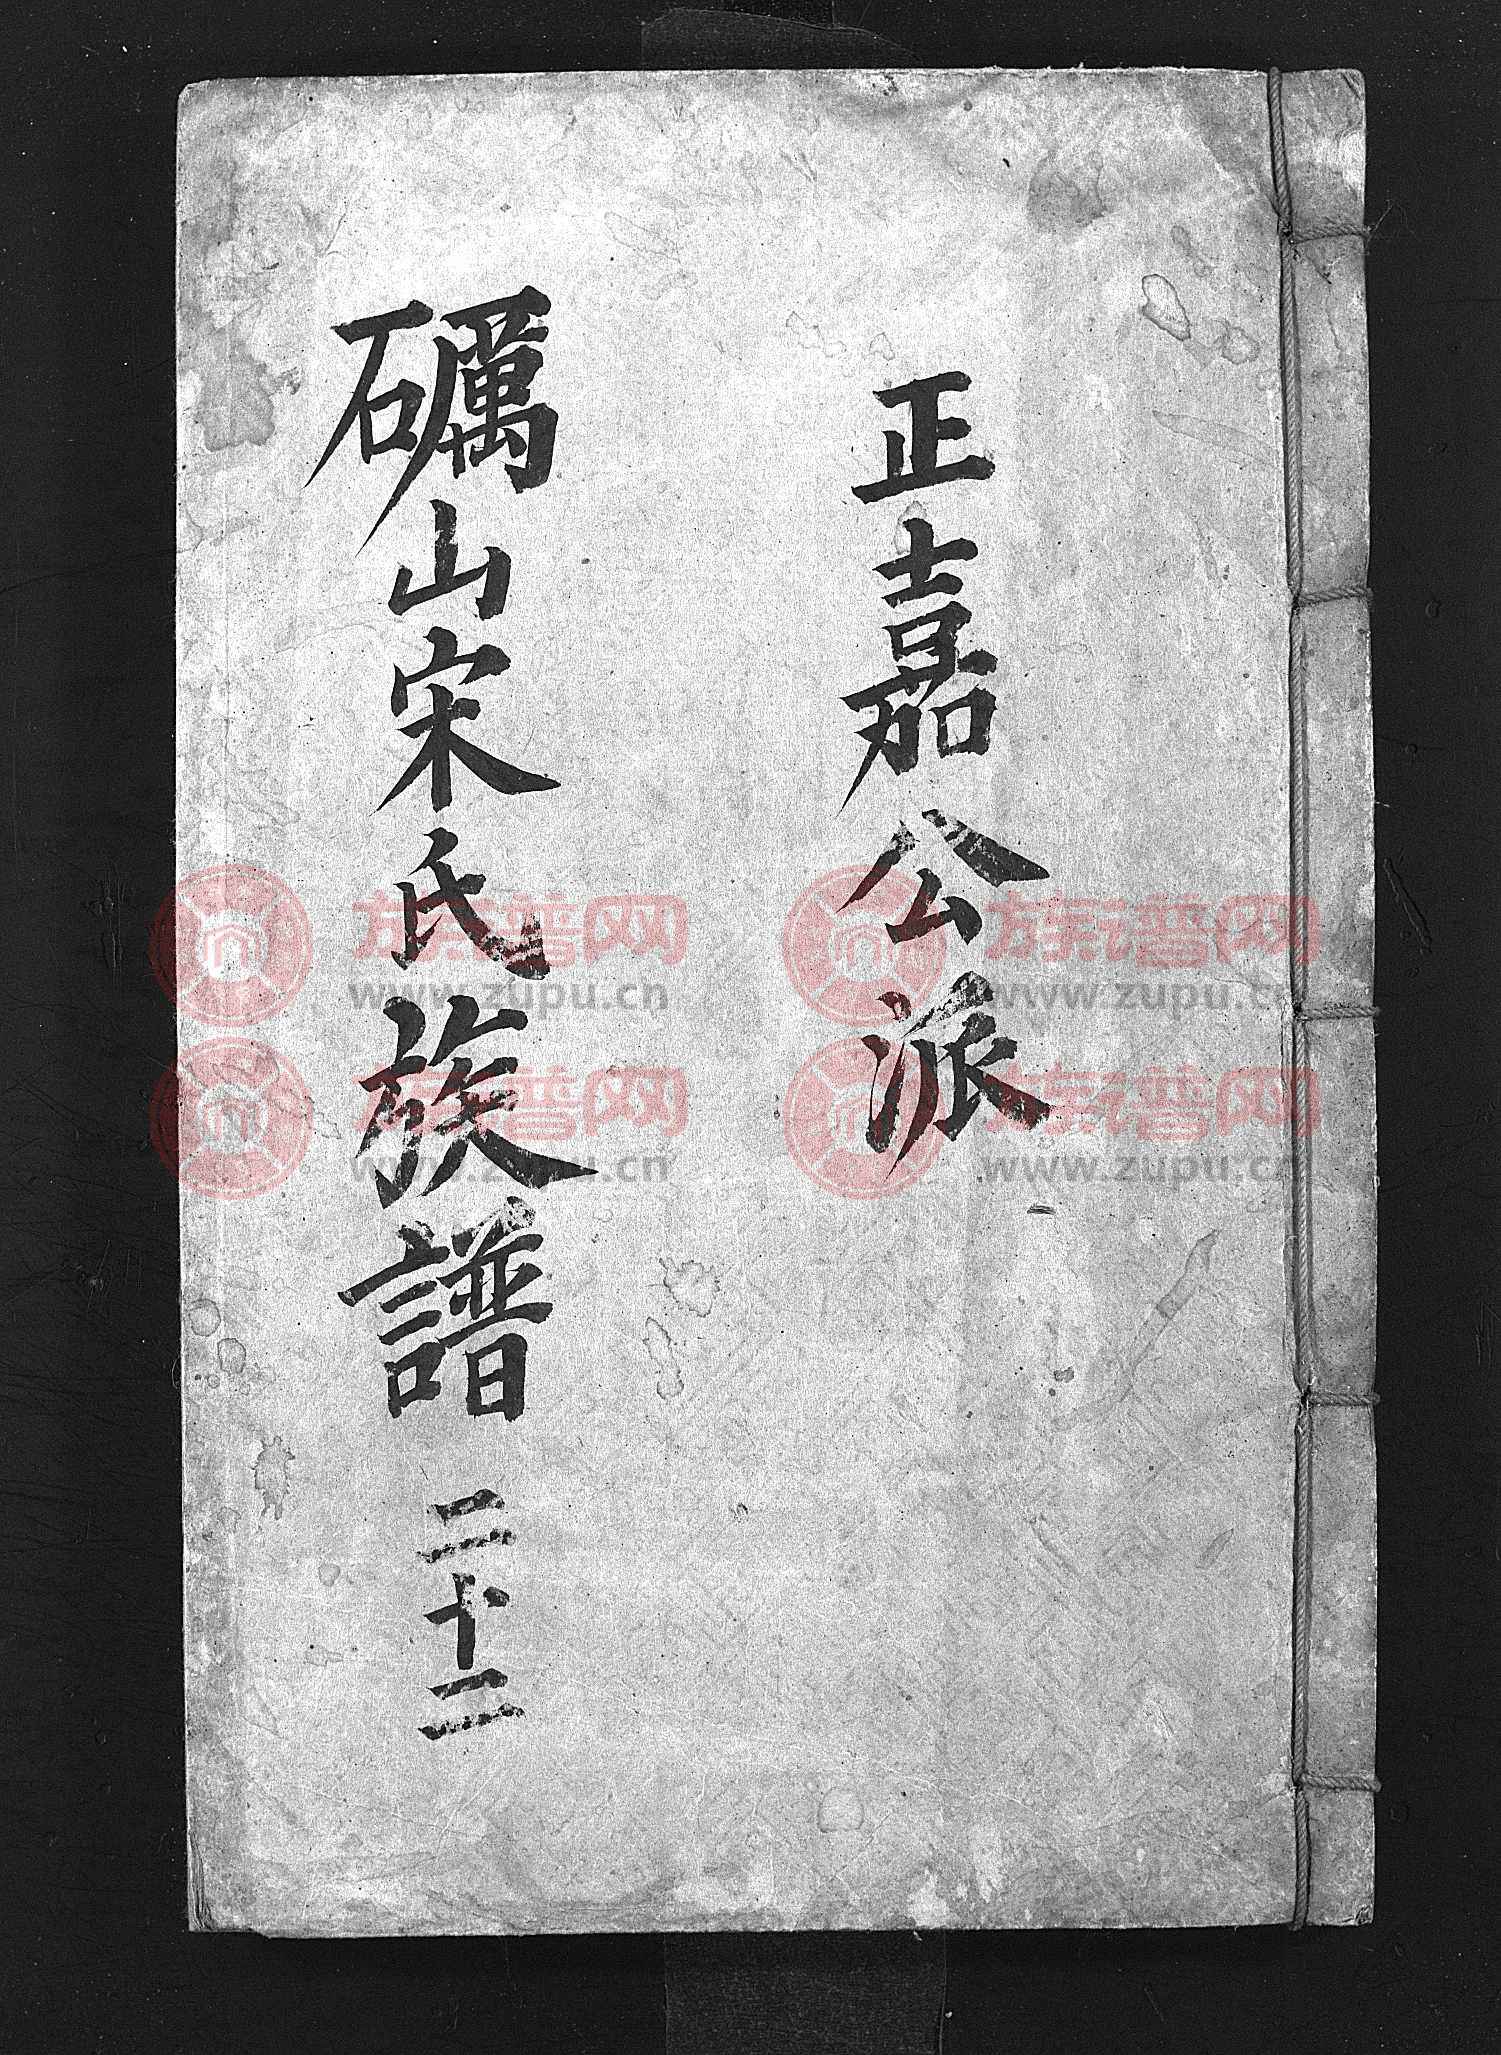 正嘉公派
礪山宋氏族譜 二十二
族谱网
www.zupu.cn
族谱网
www.zupu.cn
族谱网
www.zupu.cn
族谱网
www.zupu.cn